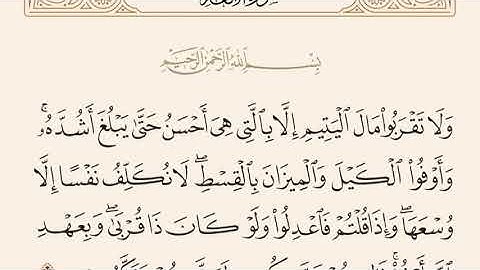 بِسْمِ اللَّهِ الرَّحْمَٰنِ الرَّحِيمِ
وَلَا تَقْرَبُوا۟ مَالَ ٱلْيَتِيمِ إِلَّا بِٱلَّتِى هِىَ أَحْسَنُ حَتَّىٰ يَبْلُغَ أَشُدَّهُۥ ۚ
وَأَوْفُوا۟ ٱلْكَيْلَ وَٱلْمِيزَانَ بِٱلْقِسْطِ ۖ لَا نُكَلِّفُ نَفْسًا إِلَّا
وُسْعَهَا ۖ وَإِذَا قُلْتُمْ فَٱعْدِلُوا۟ وَلَوْ كَانَ ذَا قُرْبَىٰ ۖ وَبِعَهْدِ